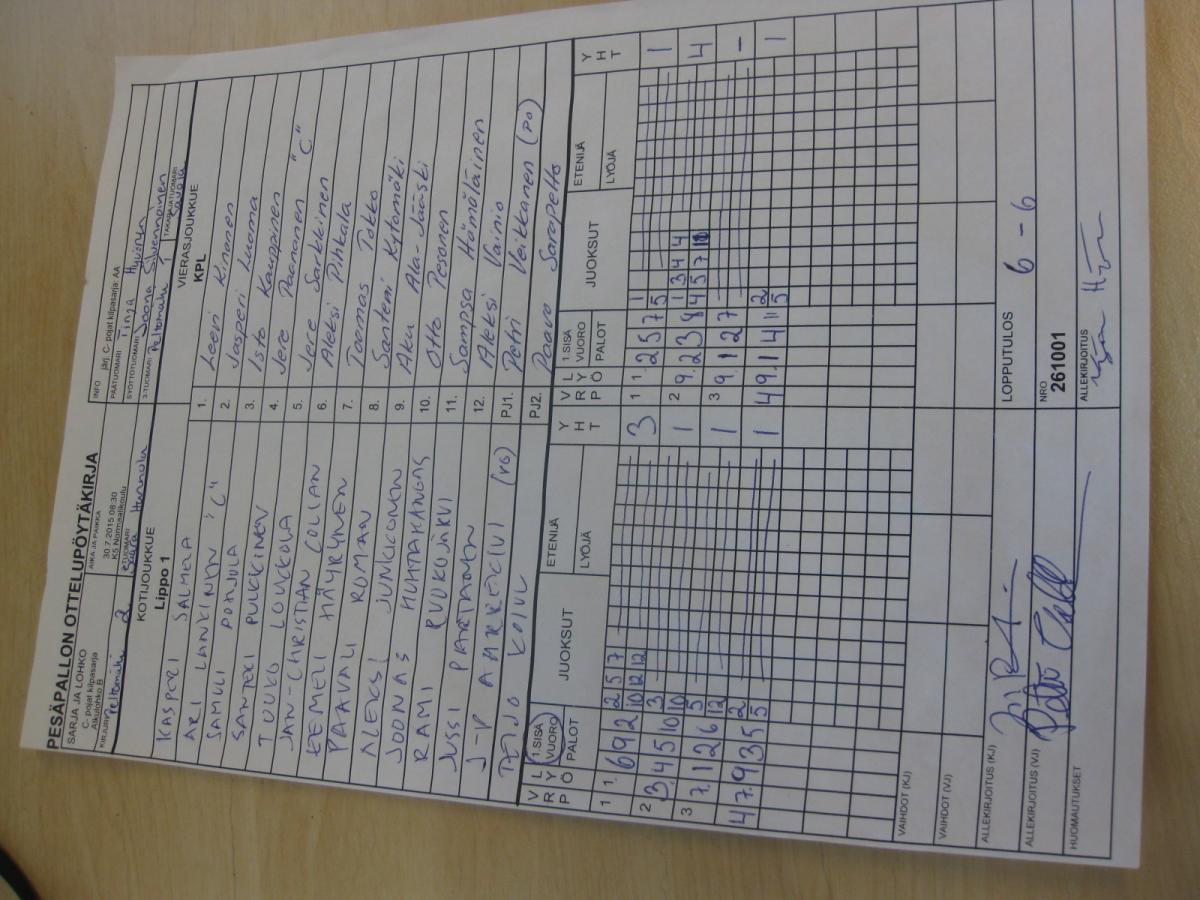 PESÄPALLON OTTELUPÖYTÄKIRJA
SARJA JA LOHKO
C- pojat kilpasarja
Alkulohko B
AIKA JA PAIKKA
30.7.2015 08:30
K5 Normaalikoulu
INFO järj. C- pojat kilpasarja: AA
PÄÄTUOMARI Tinja Hyvönen
SYÖTTÖTUOMARI Joona Silvennoinen
KIRJURI Peltomäki 2
2-TUOMARI Saara Hannula
3-TUOMARI Peltomäki 1
TAKARAJATUOMARI
KOTIJOUKKUE
Lippo 1
VIERASJOUKKUE
KPL
KASPERI SALMELA 1. Leevi Kinonen
ARI LANKINEN "C" 2. Jasperi Luoma
SAMULI POHJOLA 3. Isto Kauppinen
SANTERI PULKKINEN 4. Jere Paananen "C"
TOUKO LOUKKOLA 5. Jere Sarkkinen
JAN-CHRISTIAN COLLIAN 6. Aleksi Pihkala
EEMELI HÄYRYNEN 7. Toomas Tokko
PAAVALI ROMAN 8. Santeri Kytömäki
ALEKSI JUNKKONEN 9. Aku Ala-Jääski
JOONAS HUHTAKANGAS 10. Otto Pesonen
RAMI RUOKOJÄRVI 11. Sampsa Hämäläinen
JUSSI PARTANEN 12. Aleksi Vainio
J-P AHARRECIVI (VG) PJ1. Petri Veikkanen (PO)
TEIJO KOIVU PJ2. Paavo Sarapelto
V R P L Y Ö 1.SISÄ VUORO PALOT JUOKSUT ETENIJÄ LYÖJÄ Y H T V R P L Y Ö 1.SISÄ VUORO PALOT JUOKSUT ETENIJÄ LYÖJÄ Y H T
1 1. 6 9 12 2 5 7 3 1 1. 2 5 7 1 1
10 12 12 5
2 3. 4 5 10 3 1 2 9. 2 3 8 1 3 4 4 4
10 4 5 7 10
3 7. 1 12 6 5 1 3 9. 1 2 7 -
12
4 7. 9 3 5 2 1 4 9. 1 4 11 2 1
5 5
VAIHDOT (KJ)
VAIHDOT (VJ)
LOPPUTULOS 6 - 6
ALLEKIRJOITUS (KJ)
ALLEKIRJOITUS (VJ)
NRO
261001
HUOMAUTUKSET
ALLEKIRJOITUS